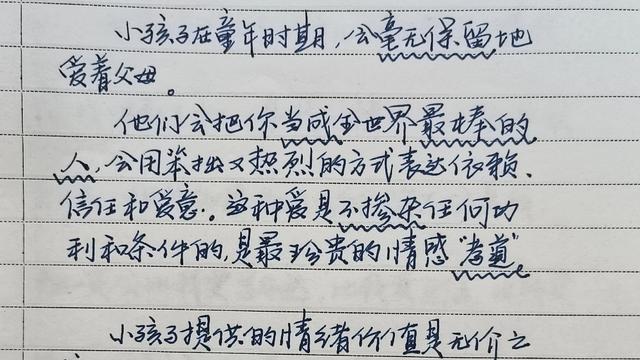 小孩子在童年时期,会毫无保留地
爱着父母。
他们会把你当成全世界最棒的
人,会用笨拙又热烈的方式表达依赖、
信任和爱意。这种爱是不掺杂任何功
利和条件的,是最珍贵的情感“孝道”
小孩子提供的情绪价值是无价之